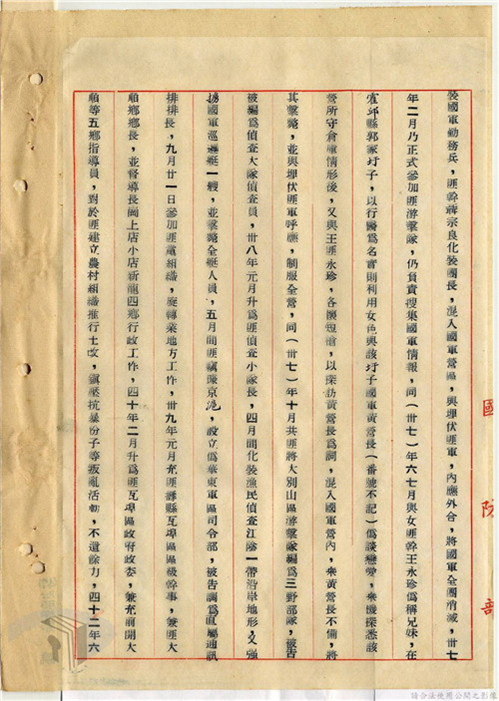 裝國軍勤務兵，匪幹蔣宗良化裝團長，混入國軍營區，與埋伏匪軍，內應外合，將國軍全團消滅，卅七
年二月乃正式參加匪游擊隊，仍負責搜集國軍情報，同（卅七）年六七月與女匪幹王永珍偽稱兄妹，在
霍邱縣郭家圩子，以行醫為名實則利用女色與該圩子國軍黃營長（番號不記）偽談戀愛，乘機探悉該
營所守倉庫情形後，又與王匪永珍，各攜短槍，以探訪黃營長為詞，混入國軍營內，乘黃營長不備，將
其擊斃，並與埋伏匪軍呼應，制服全營，同（卅七）年十月共匪將大別山區游擊隊編為三野部隊，被告
被編為偵查大隊偵查員，卅八年元月升為匪偵查小隊長，四月間化裝漁民偵查江陰一帶沿岸地形，又強
擄國軍巡邏艇一艘，並擊斃全艇人員，五月間匪竊據京滬，設立偽華東軍區司令部，被告調為直屬通訊
排排長，九月廿一日參加匪黨組織，旋轉業地方工作，卅九年元月充匪壽縣瓦埠區區級幹事，兼匪大
順鄉鄉長，並督導長崗上店小店新龍四鄉行政工作，四十年二月升為匪瓦埠區政府政委，兼充前開大
順等五鄉指導員，對於匪建立農村組織推行土改，鎮壓抗暴份子等叛亂活動，不遺餘力，四十二年六
國防部
請合法使用公開之影像